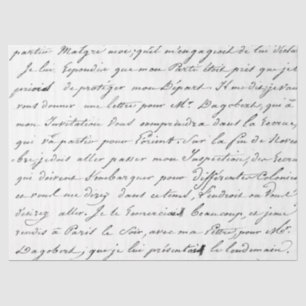 partir Malgre moi; qu'il m'engageroit de lui
Je lui Repondis que mon Parti étoit pris que je
de proteger mon Départ. Il me dit j'avais
vous donner une lettre pour Mr. Dagobert, qui à
mon Invitation Vous comprendra dans la Recrue,
qui va partir pour l'orient. Sur la fin de Novem
bre je dois aller passer mon Inspection, des Recrues
qui doivent S'embarquer pour differentes Colonies
me direz dans ce tems, l'endroit ou Vous
aller. Je le Remerciai Beaucoup, et je me
rendis à Paris le Soir, avec ma Lettre, pour Mr.
Dagobert; que je lui présentai le lendemain.